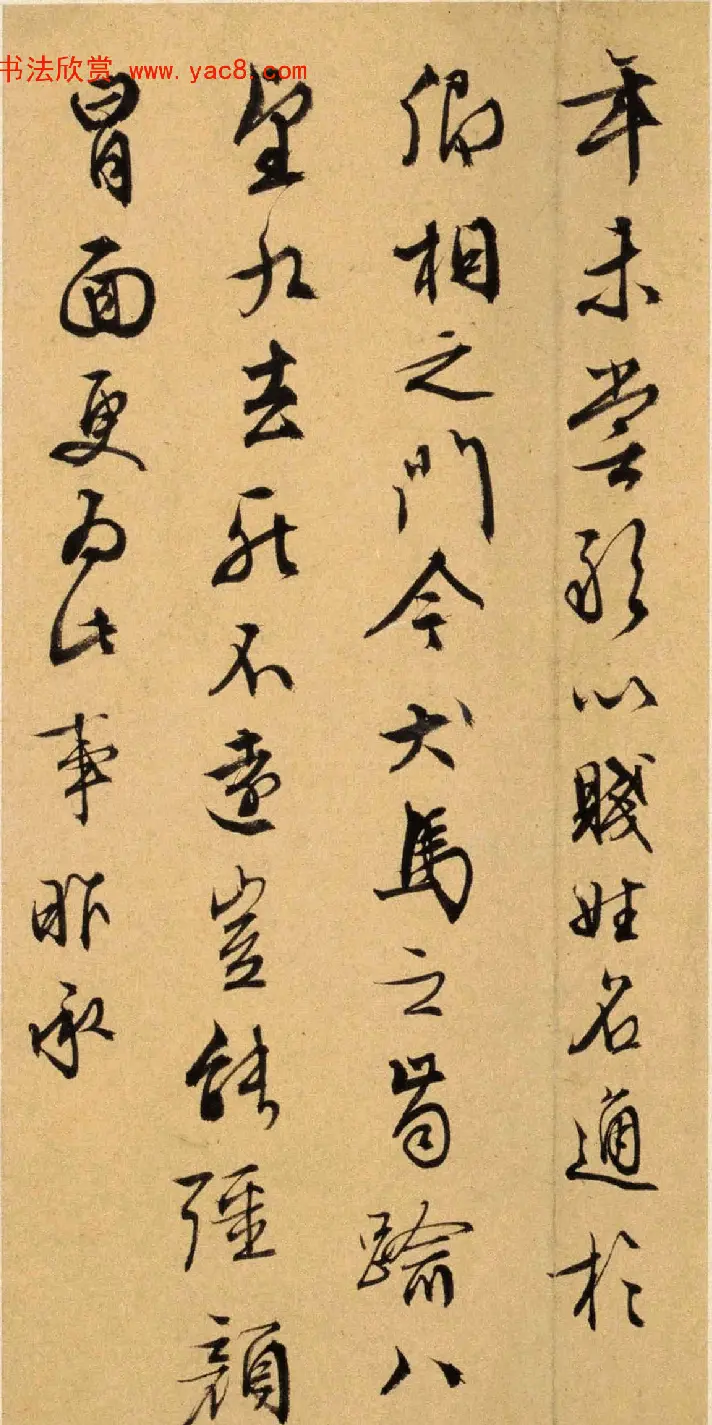 书法欣赏 www.yac8.com
年未嘗敢以賤姓名通於
卿相之門今犬馬之齒踰八
望九去死不遠豈能強顏
冒面更为此事昨承